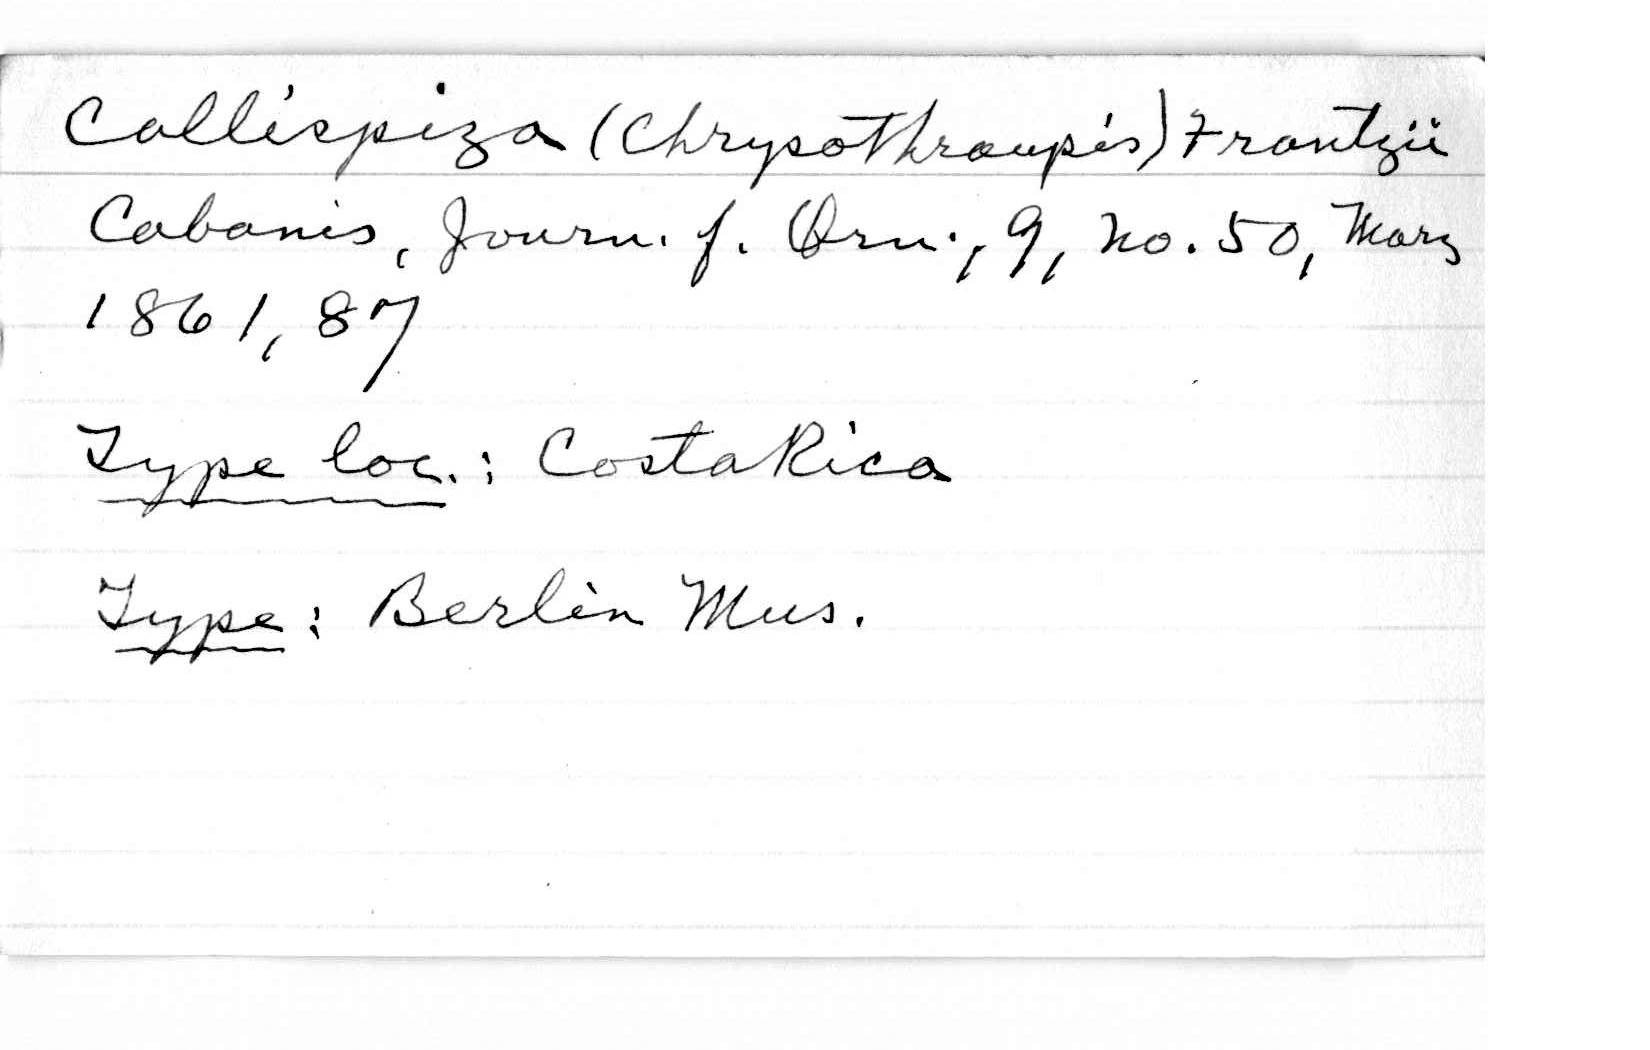 Callispiza (Chrysothraupis) Frantzii
Cabanis, Journ. f. Orn., 9, no. 50, Marz
1861, 87
Type loc.: Costa Rica
Type: Berlin Mus.